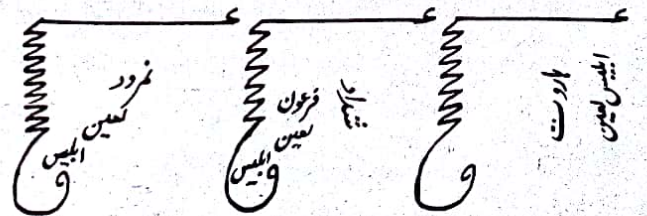 ء
ابلیس لعین
ہاروت
ء
شداد
فرعون
لعین
ابلیس
ء
نمرود
لعین
ابلیس